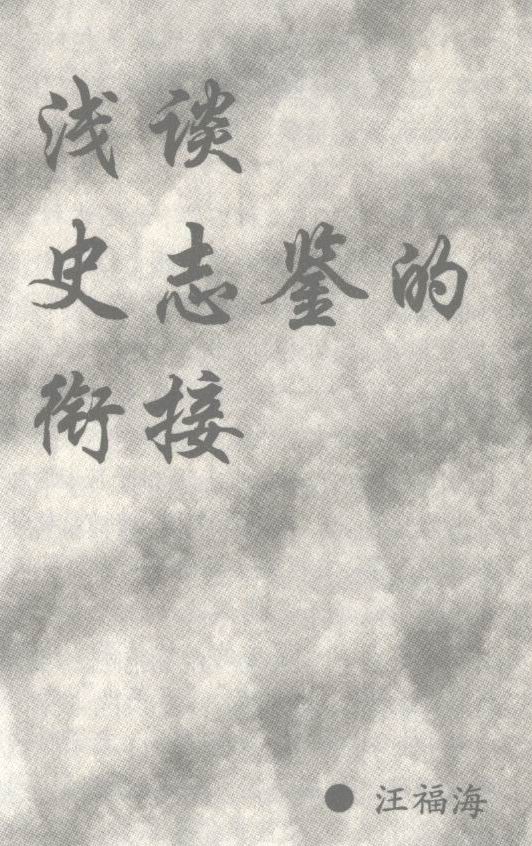 浅谈
史志鉴的
衔接
●汪福海